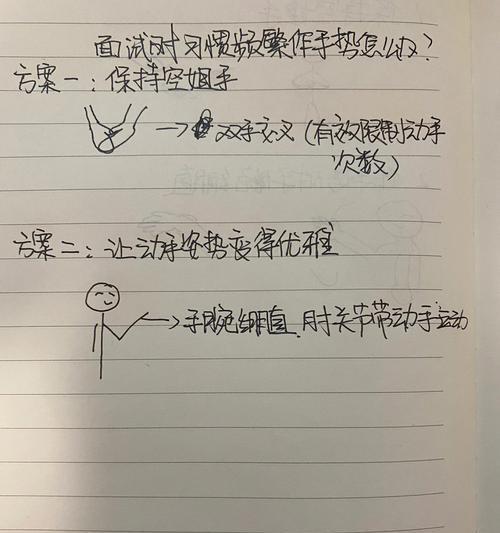 面试时习惯频繁作手势怎么办？
方案一：保持空姐手
双手交叉（有效限制动手
次数）
方案二：让动手姿势变得优雅
手腕绷直，肘关节带动手运动